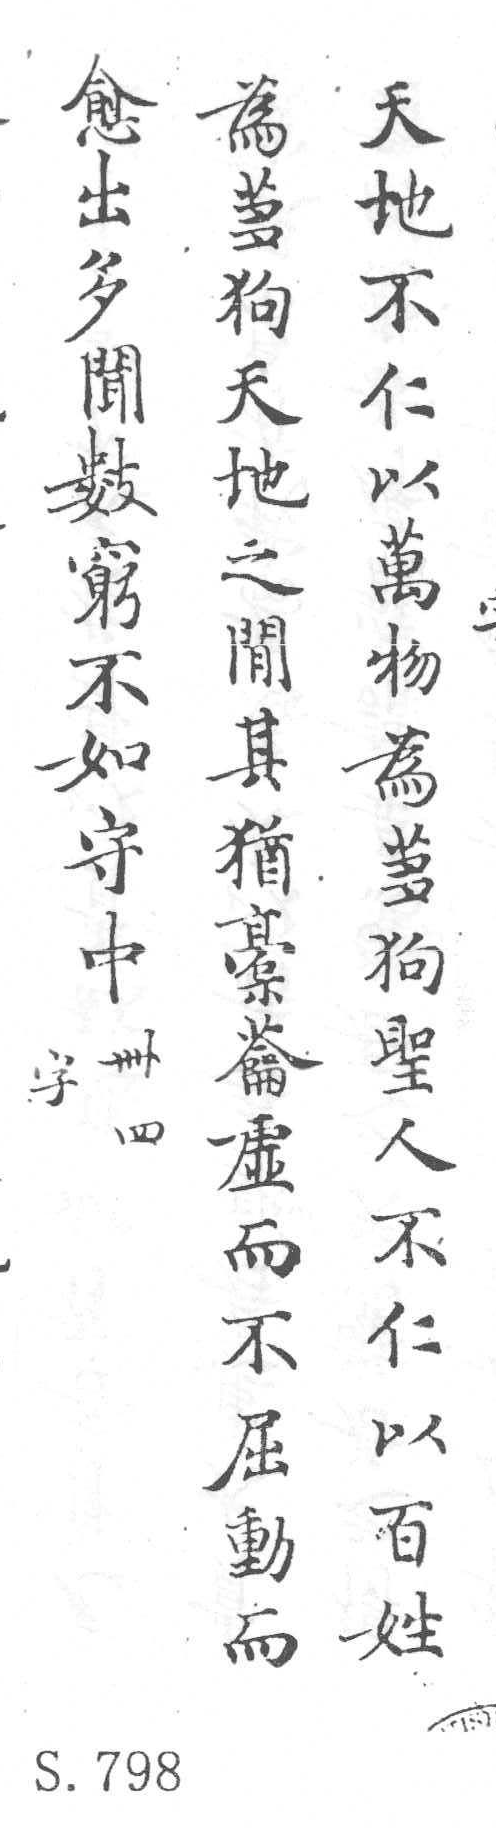 天地不仁以萬物為蒭狗聖人不仁以百姓
為蒭狗天地之間其猶橐蘥虛而不屈動而
愈出多聞數窮不如守中
卌四
字
S. 798